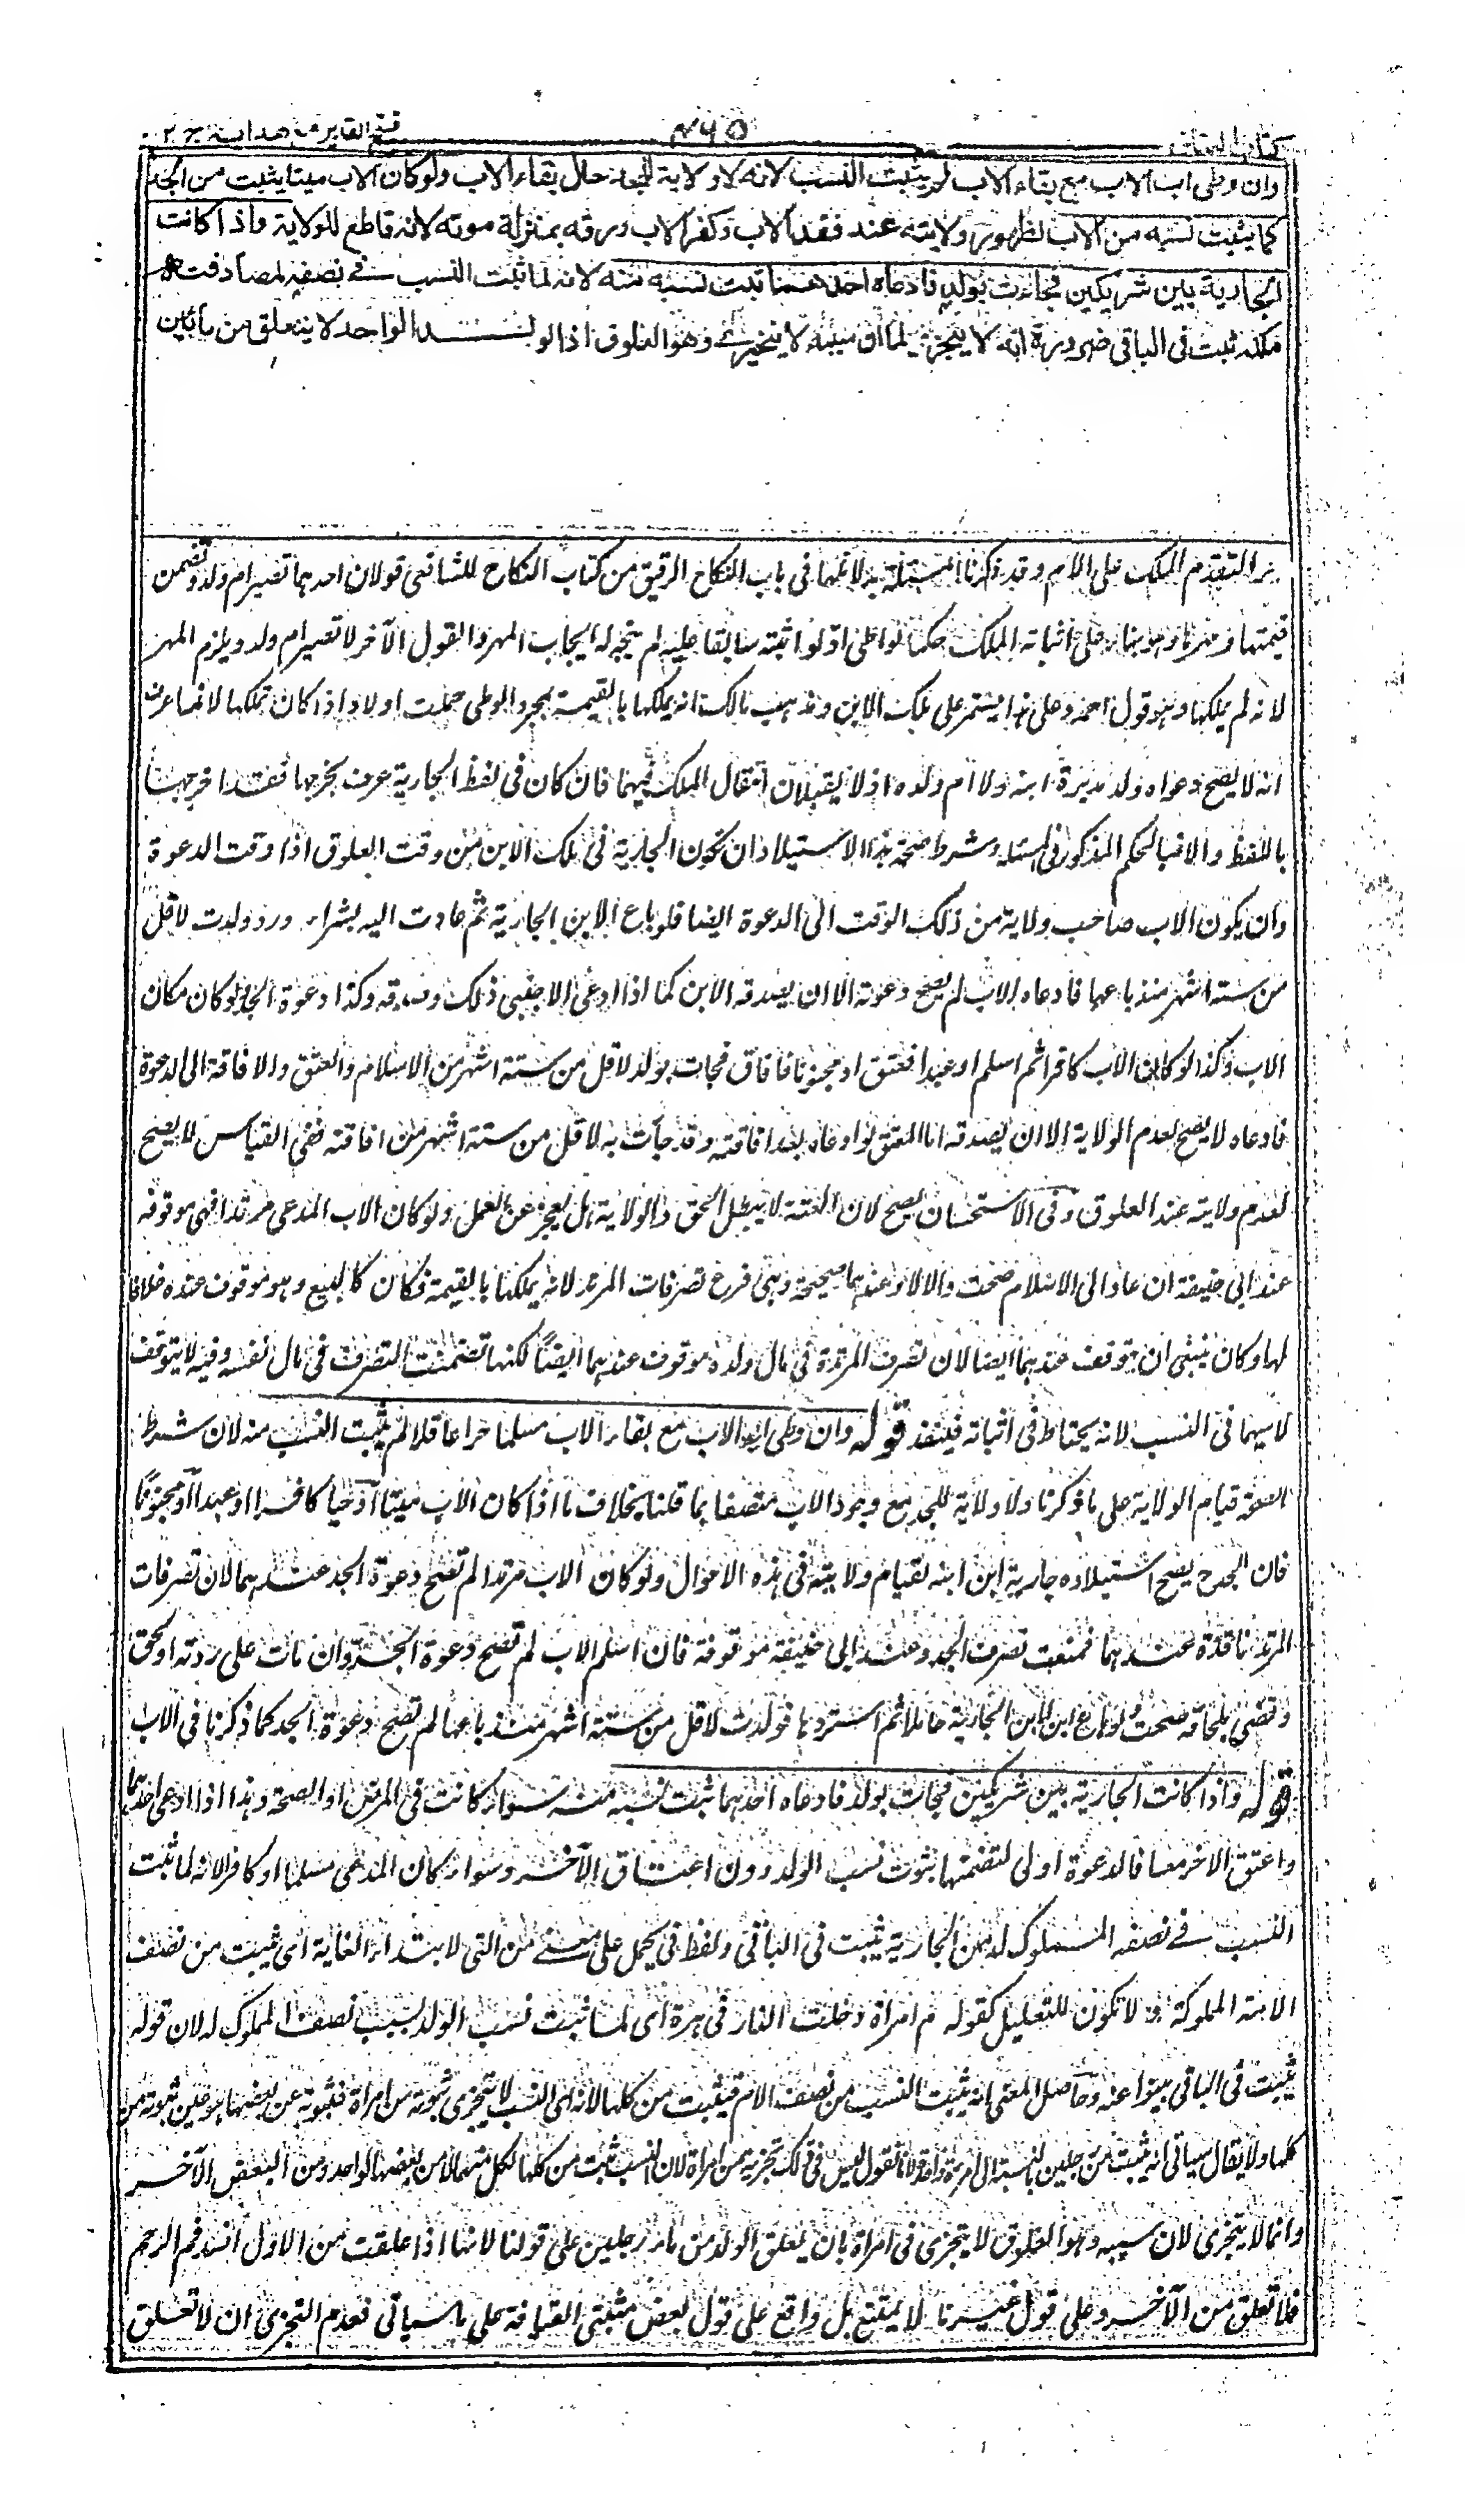 كتاب العتاق
٤٦٥
فتح القدير مع هداية ج ٢
وان وطى اب الاب مع بقاء الاب لم يثبت النسب لانه لا ولاية للجد حال بقاء الاب ولو كان الاب ميتا يثبت من الجد
كما يثبت نسبه من الاب لظهور ولايته عند فقد الاب وكفر الاب ورقه بمنزلة موته لانه قاطع للولاية واذا كانت
الجارية بين شريكين فجاءت بولد فادعاه احدهما ثبت نسبه منه لانه لما ثبت النسب في نصفه لمصادفته
ملكه ثبت في الباقي ضرورة انه لا يتجزى لما ان سببه لا يتجزى وهو العلوق اذ الولد الواحد لا ينعلق من مائين
التقدم الملك على الام وقد ذكرنا المسئلة بدلائلها فى باب النكاح الرقيق من كتاب النكاح للشافعى قولان احدهما تصير ام ولد وتضمن
قيمتها ومهرها وهو بناء على اثباته الملك حكما للوطى اذ لو اثبته سابقا عليه لم يتجه له ايجاب المهر والقول الآخر لا تصير ام ولد ويلزم المهر
لانه لم يملكها وهو قول احمد وعلى هذا يستمر على ملك الابن ومذهب مالك انه يملكها بالقيمة بمجرد الوطى حملت اولا واذا كان تملكها لانفسا عرف
انه لا يصح دعواه ولد مدبرة ابنه ولا ام ولده اذ لا يقبلان انتقال الملك فيهما فان كان فى لفظ الجارية عرف يخرجها فقد اخرجهما
باللفظ والا فبالحكم المذكور فى المسئلة وشرط صحة هذا الاستيلاد ان تكون الجارية فى ملك الابن من وقت العلوق اذا وقت الدعوة
وان يكون الاب صاحب ولاية من ذلك الوقت الى الدعوة ايضا فلو باع الابن الجارية ثم عادت اليه بشراء ورد ولدت لاقل
من ستة اشهر منذ باعها فادعاه الاب لم يصح دعوته الا ان يصدقه الابن كما اذا ادعى الاجنبى ذلك وصدقه وكذا دعوة الجد لو كان مكان
الاب وكذا لو كان الاب كافرا ثم اسلم او عبدا فعتق او مجنونا فافاق فجات بولد لاقل من ستة اشهر من الاسلام والعتق والافاقة الى الدعوة
فادعاه لا يصح لعدم الولاية الا ان يصدقه اما المعتق لو ادعاه بعد افاقته وقد جات به لاقل من ستة اشهر من افاقته ففى القياس لا يصح
لعدم ولايته عند العلوق وفى الاستحسان يصح لان العته لا يبطل الحق والولاية بل يعجز عن العمل ولو كان الاب المدعى مرتدا فهى موقوفه
عند ابى حنيفة ان عاد الى الاسلام صحت والا لا وعندهما صحيحة وهى فرع تصرفات المرتد لانه يملكها بالقيمة فكان كالبيع وهو موقوف عنده خلافا
لهما وكان ينبغى ان يتوقف عندهما ايضا لان تصرف المرتد فى مال ولده موقوف عندهما ايضا لكنها تضمنت التصرف فى مال نفسه وفيه لا يتوقف
لا سيما فى النسب لانه يحتاط فى اثباته فينفذ قوله وان وطى اب الاب مع بقاء الاب مسلما حرا عاقلا لم يثبت النسب منه لان شرط
الصحة قيام الولاية على ما ذكرنا ولا ولاية للجد مع وجود الاب متصفا بما قلنا بخلاف ما اذا كان الاب ميتا او حيا كافرا او عبدا او مجنونا
فان الجد ح يصح استيلاده جارية ابن ابنه لقيام ولايته فى هذه الاحوال ولو كان الاب مرتدا لم تصح دعوة الجد عندهما لان تصرفات
المرتد نافذة عندهما فمنعت تصرف الجد وعند ابى حنيفة موقوفة فان اسلم الاب لم تصح دعوة الجد وان مات على ردته او لحق
وقضى بلحاقه صحت ولو باع ابن الابن الجارية حاملا ثم استردها فولدت لاقل من ستة اشهر منذ باعها لم تصح دعوة الجد كما ذكرنا فى الاب
قوله واذا كانت الجارية بين شريكين فجات بولد فادعاه احدهما ثبت نسبه منه سواء كانت فى المرض او الصحة وهذا اذا ادعى احدهما
واعتق الاخر معا فالدعوة اولى لتضمنها ثبوت نسب الولد دون اعتاق الآخر وسواء كان المدعى مسلما او كافرا لانه لما ثبت
النسب فے نصفه المملوك له من الجارية يثبت فى الباقى ولفظ فى يحمل على معنے من التى لابتداء الغاية اى يثبت من نصف
الامة المملوكة له لا تكون للتعليل كقوله م امراة دخلت النار فى هرة اى لما ثبت نسب الولد بسبب نصف المملوك له لان قوله
يثبت فى الباقى ينبوا عنه وحاصل المعنى انه يثبت النسب من نصف الام فيثبت من كلها لانه اى النسب لا يتجزى ثبوته من امراة فثبوته عن بعضها هو عين ثبوته من
كلها ولا يقال سياتى انه يثبت من رجلين بالنسبة الى امراة واحدة لانا نقول ليس فى ذلك تجزية من امراة لان النسب ثبت من كلها لكل منهما لا من بعضها لواحد ومن البعض الآخر
وانما لا يتجزى لان سببه وهو العلوق لا يتجزى فى امراة بان يعلق الولد من ماء رجلين على قولنا لانها اذا علقت من الاول انسد فم الرحم
فلا تعلق من الآخر وعلى قول غيرنا لا يمتنع بل واقع على قول بعض مثبتى القيافة على ما سياتى فعدم التجزى ان لا تعلق